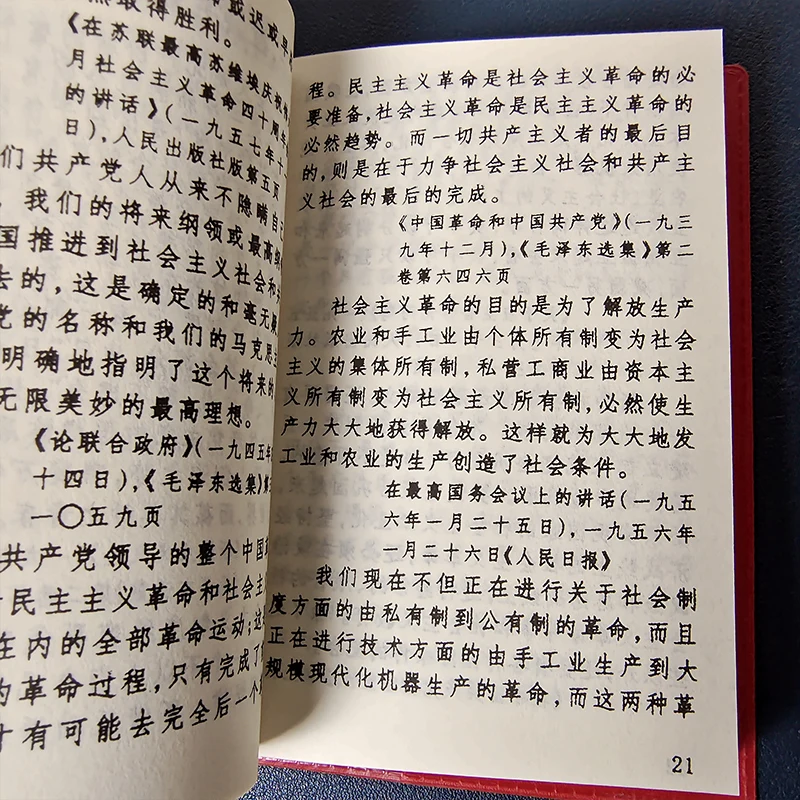 或迟或早
然取得胜利。
《在苏联最高苏维埃庆祝
月社会主义革命四十周年
的讲话》(一九五七年十
日),人民出版社版第五页
们共产党人从来不隐瞒自己
,我们的将来纲领或最高纲
国推进到社会主义社会和
去的,这是确定的和毫无疑
党的名称和我们的马克思主
明确地指明了这个将来的
无限美妙的最高理想。
《论联合政府》(一九四五年
十四日),《毛泽东选集》第三
一〇五九页
共产党领导的整个中国革
民主主义革命和社会主
在内的全部革命运动;这
的革命过程,只有完成了
才有可能去完全后一个
程。民主主义革命是社会主义革命的必
要准备,社会主义革命是民主主义革命的
必然趋势。而一切共产主义者的最后目
的,则是在于力争社会主义社会和共产主
义社会的最后的完成。
《中国革命和中国共产党》(一九三
九年十二月),《毛泽东选集》第二
卷第六四六页
社会主义革命的目的是为了解放生产
力。农业和手工业由个体所有制变为社会
主义的集体所有制,私营工商业由资本主
义所有制变为社会主义所有制,必然使生
产力大大地获得解放。这样就为大大地发
工业和农业的生产创造了社会条件。
在最高国务会议上的讲话(一九五
六年一月二十五日),一九五六年
一月二十六日《人民日报》
我们现在不但正在进行关于社会制
度方面的由私有制到公有制的革命,而且
正在进行技术方面的由手工业生产到大
规模现代化机器生产的革命,而这两种革
21